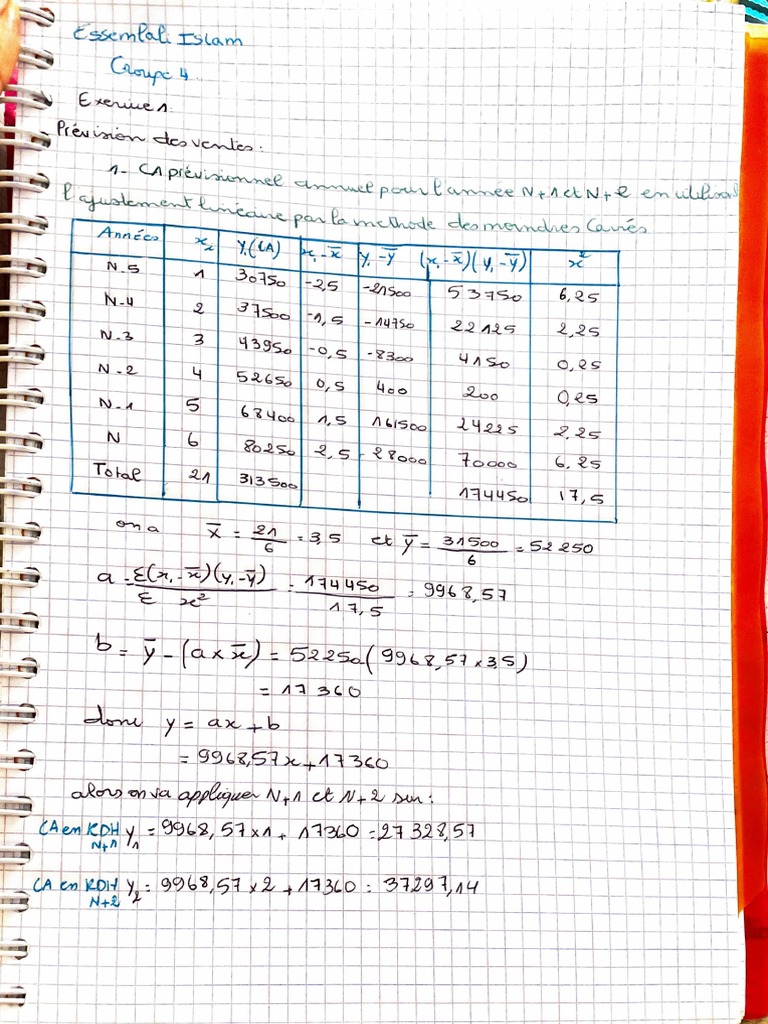 Essemlali Islam
Groupe 4
Exercice 1
- Prévision des ventes :
1- CA prévisionnel annuel pour l'année N+1 et N+2 en utilisant
l'ajustement linéaire par la méthode des moindres Carrés
Années x. Y.(CA) x.-x̄ Y.-Ȳ (x.-x̄)(Y.-Ȳ) x²
N-5 1 30750 -2,5 -21500 53750 6,25
N-4 2 37500 -1,5 -14750 22125 2,25
N-3 3 43950 -0,5 -8300 4150 0,25
N-2 4 52650 0,5 400 200 0,25
N-1 5 68400 1,5 161500 24225 2,25
N 6 80250 2,5 28000 70000 6,25
Total 21 313500 174450 17,5
on a x̄ = 21/6 = 3,5 et ȳ = 31500/6 = 52250
a = Σ(x.-x̄)(y.-ȳ)/Σ x² = 174450/17,5 = 9968,57
b = ȳ - (a × x̄) = 52250(9968,57 × 3,5)
= 17360
donc y = ax + b
= 9968,57x + 17360
alors on va appliquer N+1 et N+2 sur :
CA en KDH N+1 y₁ = 9968,57 × 1 + 17360 = 27328,57
CA en KDH N+2 y₂ = 9968,57 × 2 + 17360 = 37297,14